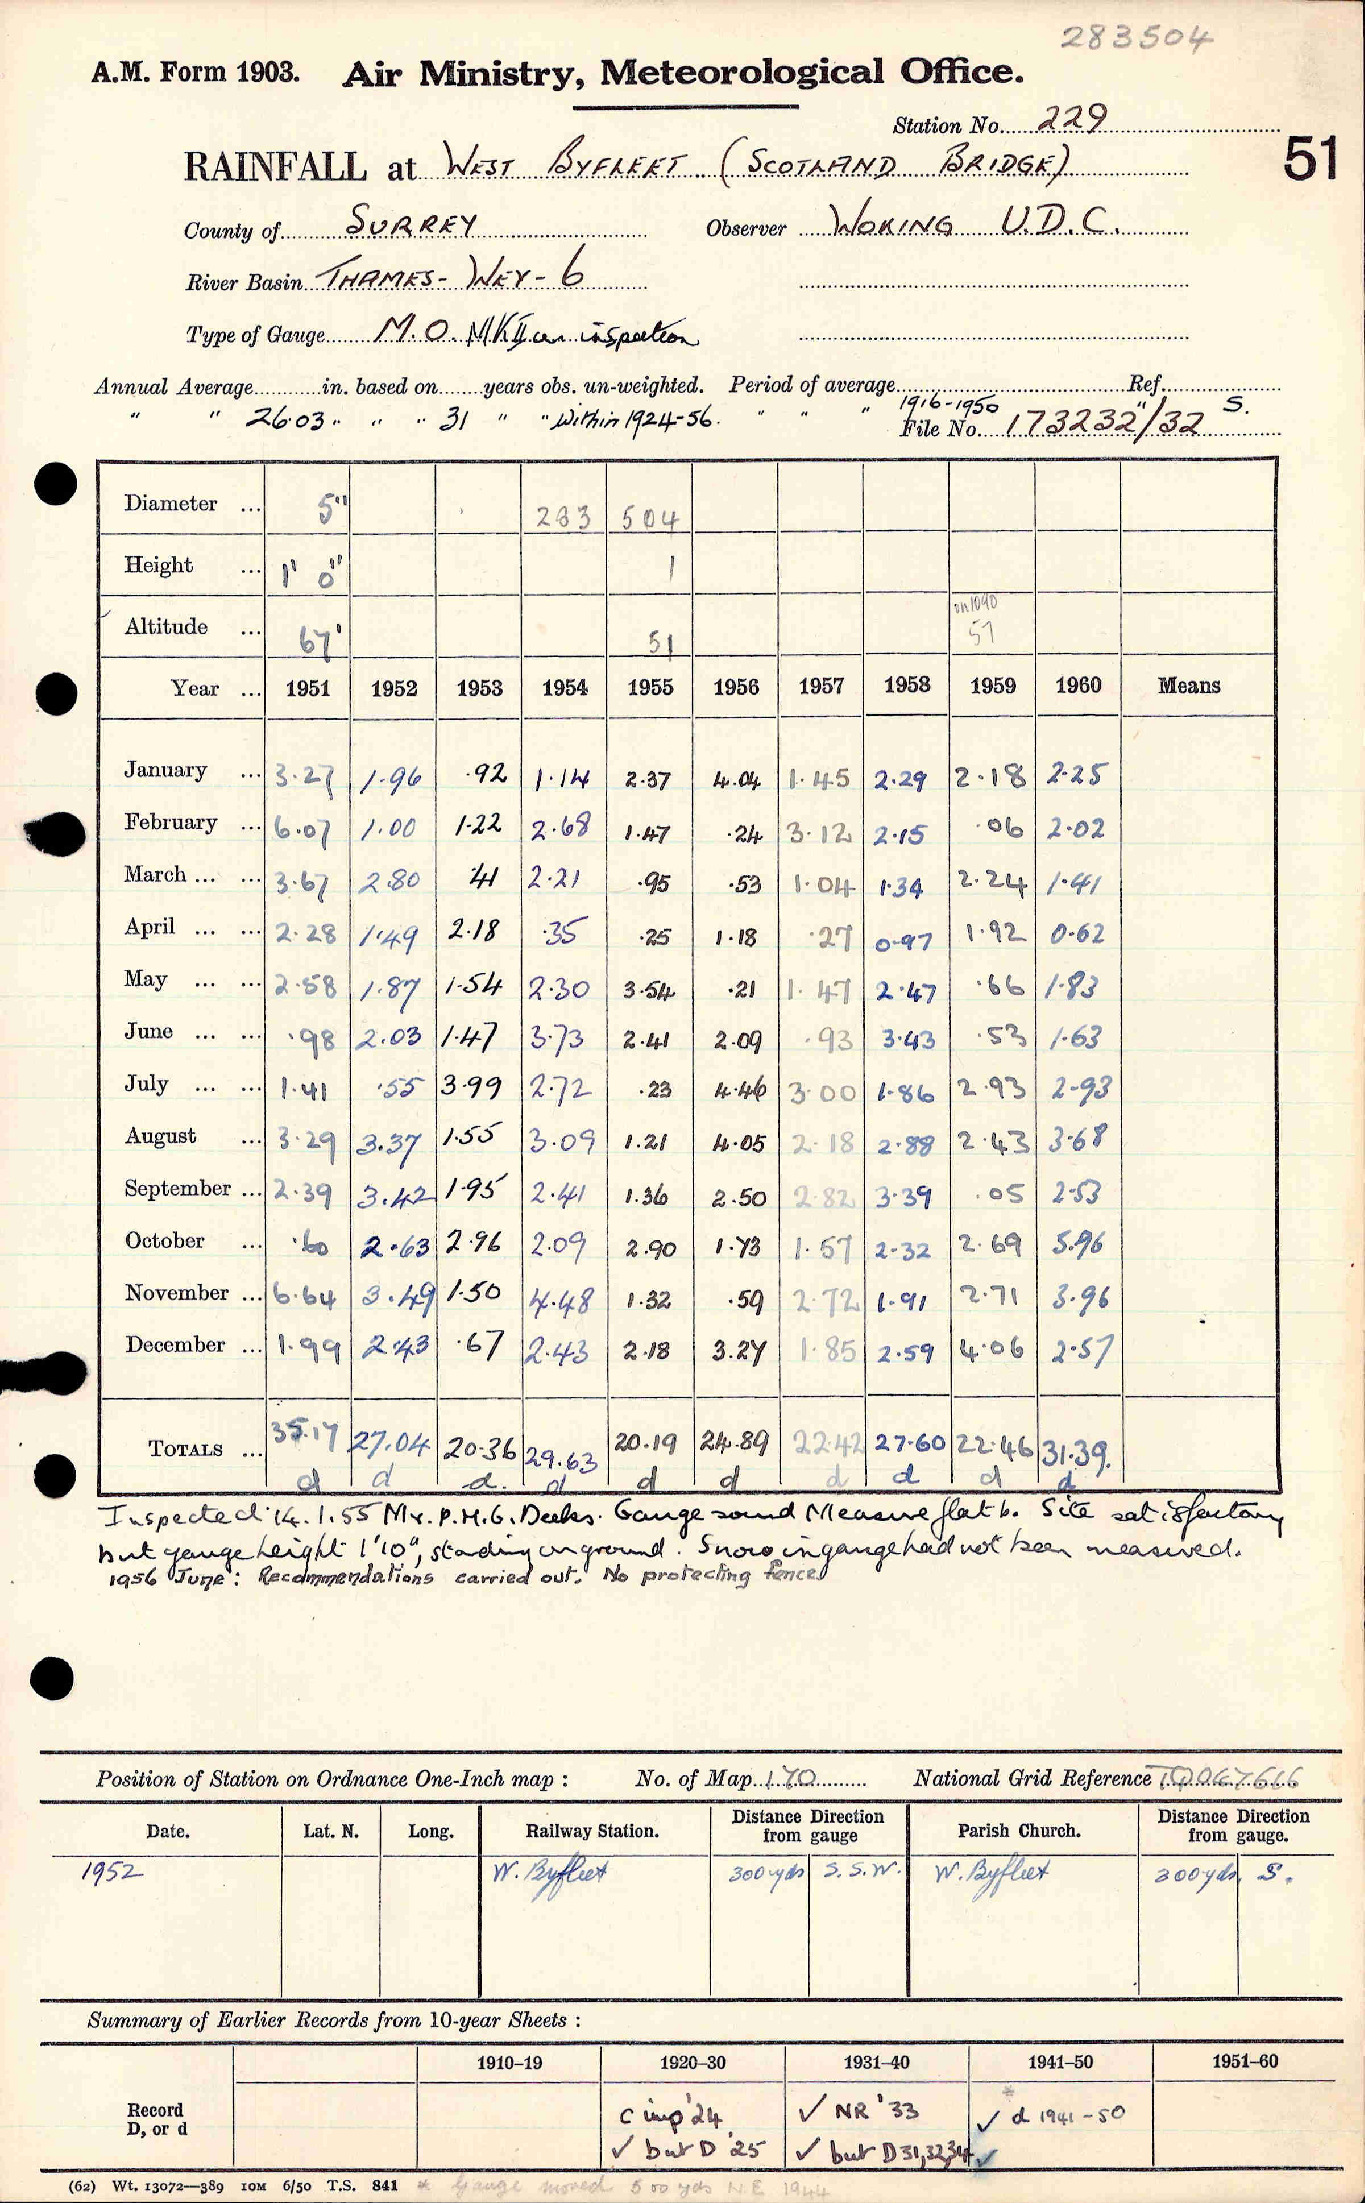 283504
A.M. Form 1903. Air Ministry, Meteorological Office.
Station No. 229
51
RAINFALL at WEST BYFLEET (SCOTLAND BRIDGE)
County of SURREY Observer WOKING U.D.C.
River Basin THAMES - WEY - 6
Type of Gauge M.O. MKII on inspection
Annual Average in. based on years obs. un-weighted. Period of average Ref.
" " 26.03 " " " 31 " " Within 1924-56. " " " 1916-1950 " S.
File No. 173232/32
Diameter ... 5" 283 504
Height ... 1' 0" 1
Altitude ... 67' 51 on 1090 57
Year ... 1951 1952 1953 1954 1955 1956 1957 1958 1959 1960 Means
January ... 3.27 1.96 .92 1.14 2.37 4.04 1.45 2.29 2.18 2.25
February ... 6.07 1.00 1.22 2.68 1.47 .24 3.12 2.15 .06 2.02
March ... ... 3.67 2.80 .41 2.21 .95 .53 1.04 1.34 2.24 1.41
April ... ... 2.28 1.49 2.18 .35 .25 1.18 .27 0.97 1.92 0.62
May ... ... 2.58 1.87 1.54 2.30 3.54 .21 1.47 2.47 .66 1.83
June ... ... .98 2.03 1.47 3.73 2.41 2.09 .93 3.43 .53 1.63
July ... ... 1.41 .55 3.99 2.72 .23 4.46 3.00 1.86 2.93 2.93
August ... 3.29 3.37 1.55 3.09 1.21 4.05 2.18 2.88 2.43 3.68
September ... 2.39 3.42 1.95 2.41 1.36 2.50 2.82 3.39 .05 2.53
October ... .60 2.63 2.96 2.09 2.90 1.73 1.57 2.32 2.69 5.96
November ... 6.64 3.49 1.50 4.48 1.32 .59 2.72 1.91 2.71 3.96
December ... 1.99 2.43 .67 2.43 2.18 3.27 1.85 2.59 4.06 2.57
TOTALS ... 35.17 27.04 20.36 29.63 20.19 24.89 22.42 27.60 22.46 31.39.
d d d. d d d d d d d
Inspected 14.1.55 Mr. P.H.G. Deeks. Gauge sound Measure flat b. Site satisfactory
but gauge height 1'10", standing on ground. Snow in gauge had not been measured.
1956 June: Recommendations carried out. No protecting fence
Position of Station on Ordnance One-Inch map : No. of Map 170 National Grid Reference TQ067616
Date. Lat. N. Long. Railway Station. Distance Direction from gauge Parish Church. Distance Direction from gauge.
1952 W. Byfleet 300 yds S.S.W. W. Byfleet 300 yds. S.
Summary of Earlier Records from 10-year Sheets :
1910–19 1920–30 1931–40 1941–50 1951–60
Record D, or d
c imp '24 ✓ NR '33 * ✓ d 1941-50
✓ but D '25 ✓ but D 31,32,34 ✓
(62) Wt. 13072—389 IOM 6/50 T.S. 841 * Gauge moved 500 yds N.E 1944